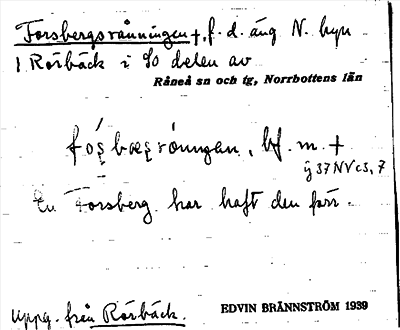 Forsbergsrånningen +, f. d. äng N. byn
1 Rörbäck i SO delen av
Råneå sn och tg, Norrbottens län
bf. m. +
ij 37 NV c3, 7
En Forsberg har haft den förr.
Uppg. från Rörbäck.
EDVIN BRÄNNSTRÖM 1939